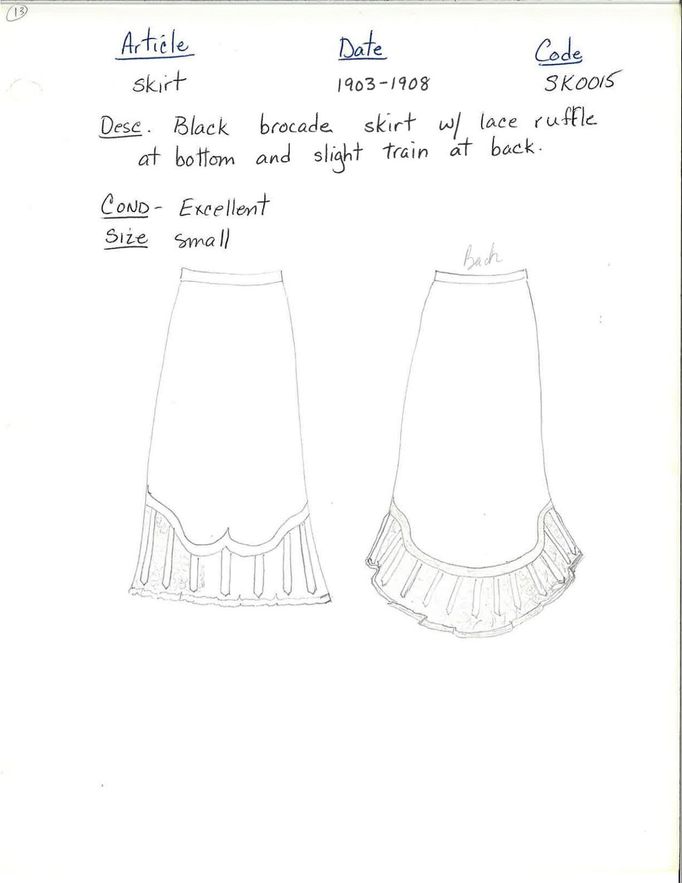 13
Article Date Code
Skirt 1903-1908 SK0015
Desc. Black brocade skirt w/ lace ruffle
at bottom and slight train at back.
COND- Excellent
Size small
Back